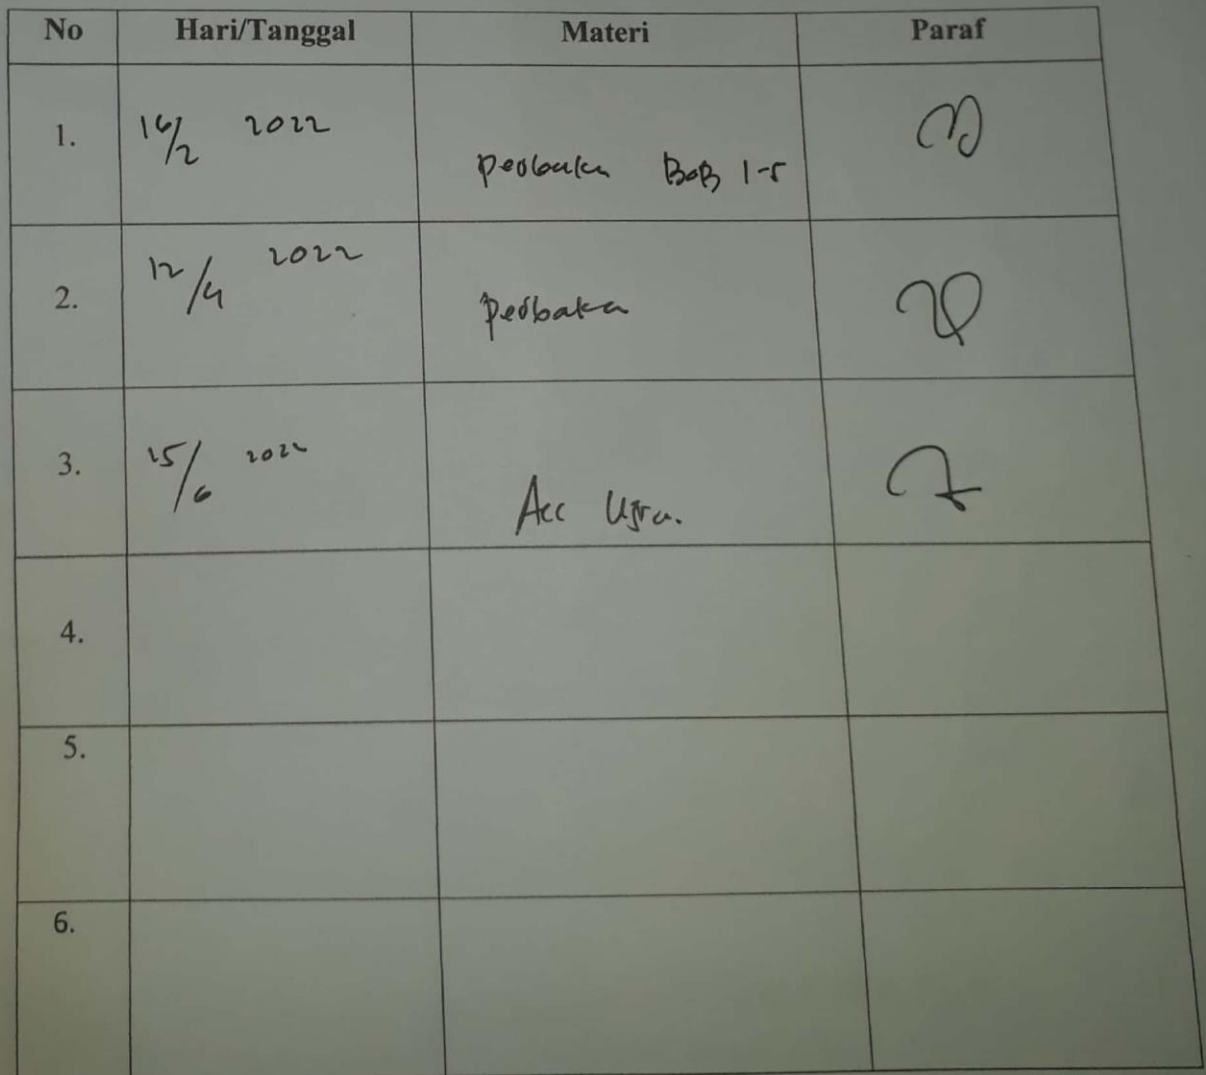 No Hari/Tanggal Materi Paraf
1. 16/2 2022 perbaika BAB 1-5
2. 12/4 2022 perbaika
3. 15/6 2022 Acc Ujian.
4.
5.
6.